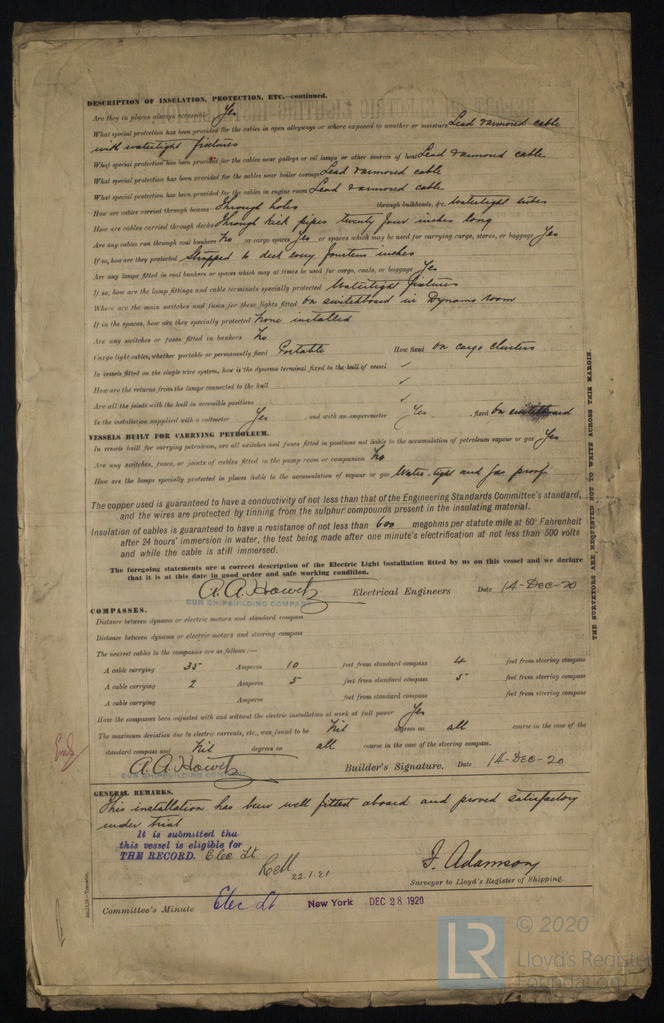 DESCRIPTION OF INSULATION, PROTECTION, ETC.—continued.
Are they in places always accessible Yes
What special protection has been provided for the cables in open alleyways or where exposed to weather or moisture Lead & armored cable
with watertight fixtures
What special protection has been provided for the cables near galleys or oil lamps or other sources of heat Lead & armored cable
What special protection has been provided for the cables near boiler casings Lead & armored cable
What special protection has been provided for the cables in engine room Lead & armored cable
How are cables carried through beams Through holes through bulkheads, &c. Watertight tubes
How are cables carried through decks Through kick pipes twenty four inches long
Are any cables run through coal bunkers No or cargo spaces Yes or spaces which may be used for carrying cargo, stores, or baggage Yes
If so, how are they protected Strapped to deck every fourteen inches
Are any lamps fitted in coal bunkers or spaces which may at times be used for cargo, coals, or baggage Yes
If so, how are the lamp fittings and cable terminals specially protected Watertight fixtures
Where are the main switches and fuses for these lights fitted On switchboard in Dynamo room
If in the spaces, how are they specially protected None installed
Are any switches or fuses fitted in bunkers No
Cargo light cables, whether portable or permanently fixed Portable How fixed On cargo clusters
In vessels fitted on the single wire system, how is the dynamo terminal fixed to the hull of vessel ✓
How are the returns from the lamps connected to the hull ✓
Are all the joints with the hull in accessible positions ✓
Is the installation supplied with a voltmeter Yes and with an amperemeter Yes, fixed On switchboard
VESSELS BUILT FOR CARRYING PETROLEUM.
In vessels built for carrying petroleum, are all switches and fuses fitted in positions not liable to the accumulation of petroleum vapour or gas Yes
Are any switches, fuses, or joints of cables fitted in the pump room or companion No
How are the lamps specially protected in places liable to the accumulation of vapour or gas Water-tight and Gas proof
The copper used is guaranteed to have a conductivity of not less than that of the Engineering Standards Committee's standard,
and the wires are protected by tinning from the sulphur compounds present in the insulating material.
Insulation of cables is guaranteed to have a resistance of not less than 600 megohms per statute mile at 60° Fahrenheit
after 24 hours' immersion in water, the test being made after one minute's electrification at not less than 500 volts
and while the cable is still immersed.
The foregoing statements are a correct description of the Electric Light installation fitted by us on this vessel and we declare
that it is at this date in good order and safe working condition.
A. A. Howitz Electrical Engineers Date 14-Dec-20
SUN SHIPBUILDING COMPANY
COMPASSES.
Distance between dynamo or electric motors and standard compass
Distance between dynamo or electric motors and steering compass
The nearest cables to the compasses are as follows:—
A cable carrying 35 Amperes 10 feet from standard compass 4 feet from steering compass
A cable carrying 2 Amperes 5 feet from standard compass 5 feet from steering compass
A cable carrying Amperes feet from standard compass feet from steering compass
Have the compasses been adjusted with and without the electric installation at work at full power Yes
The maximum deviation due to electric currents, etc., was found to be Nil degrees on all course in the case of the
standard compass and Nil degrees on all course in the case of the steering compass.
A. A. Howitz Builder's Signature. Date 14-Dec-20
SUN SHIPBUILDING COMPANY
GENERAL REMARKS.
This installation has been well fitted aboard and proved satisfactory
under trial
It is submitted tha
this vessel is eligible for
THE RECORD. Elec Lt
22.1.21
J. Adamson
Surveyor to Lloyd's Register of Shipping.
Committee's Minute Elec Lt New York DEC 28 1920
THE SURVEYORS ARE REQUESTED NOT TO WRITE ACROSS THIS MARGIN.
LR
© 2020
Lloyd's Register
Foundation